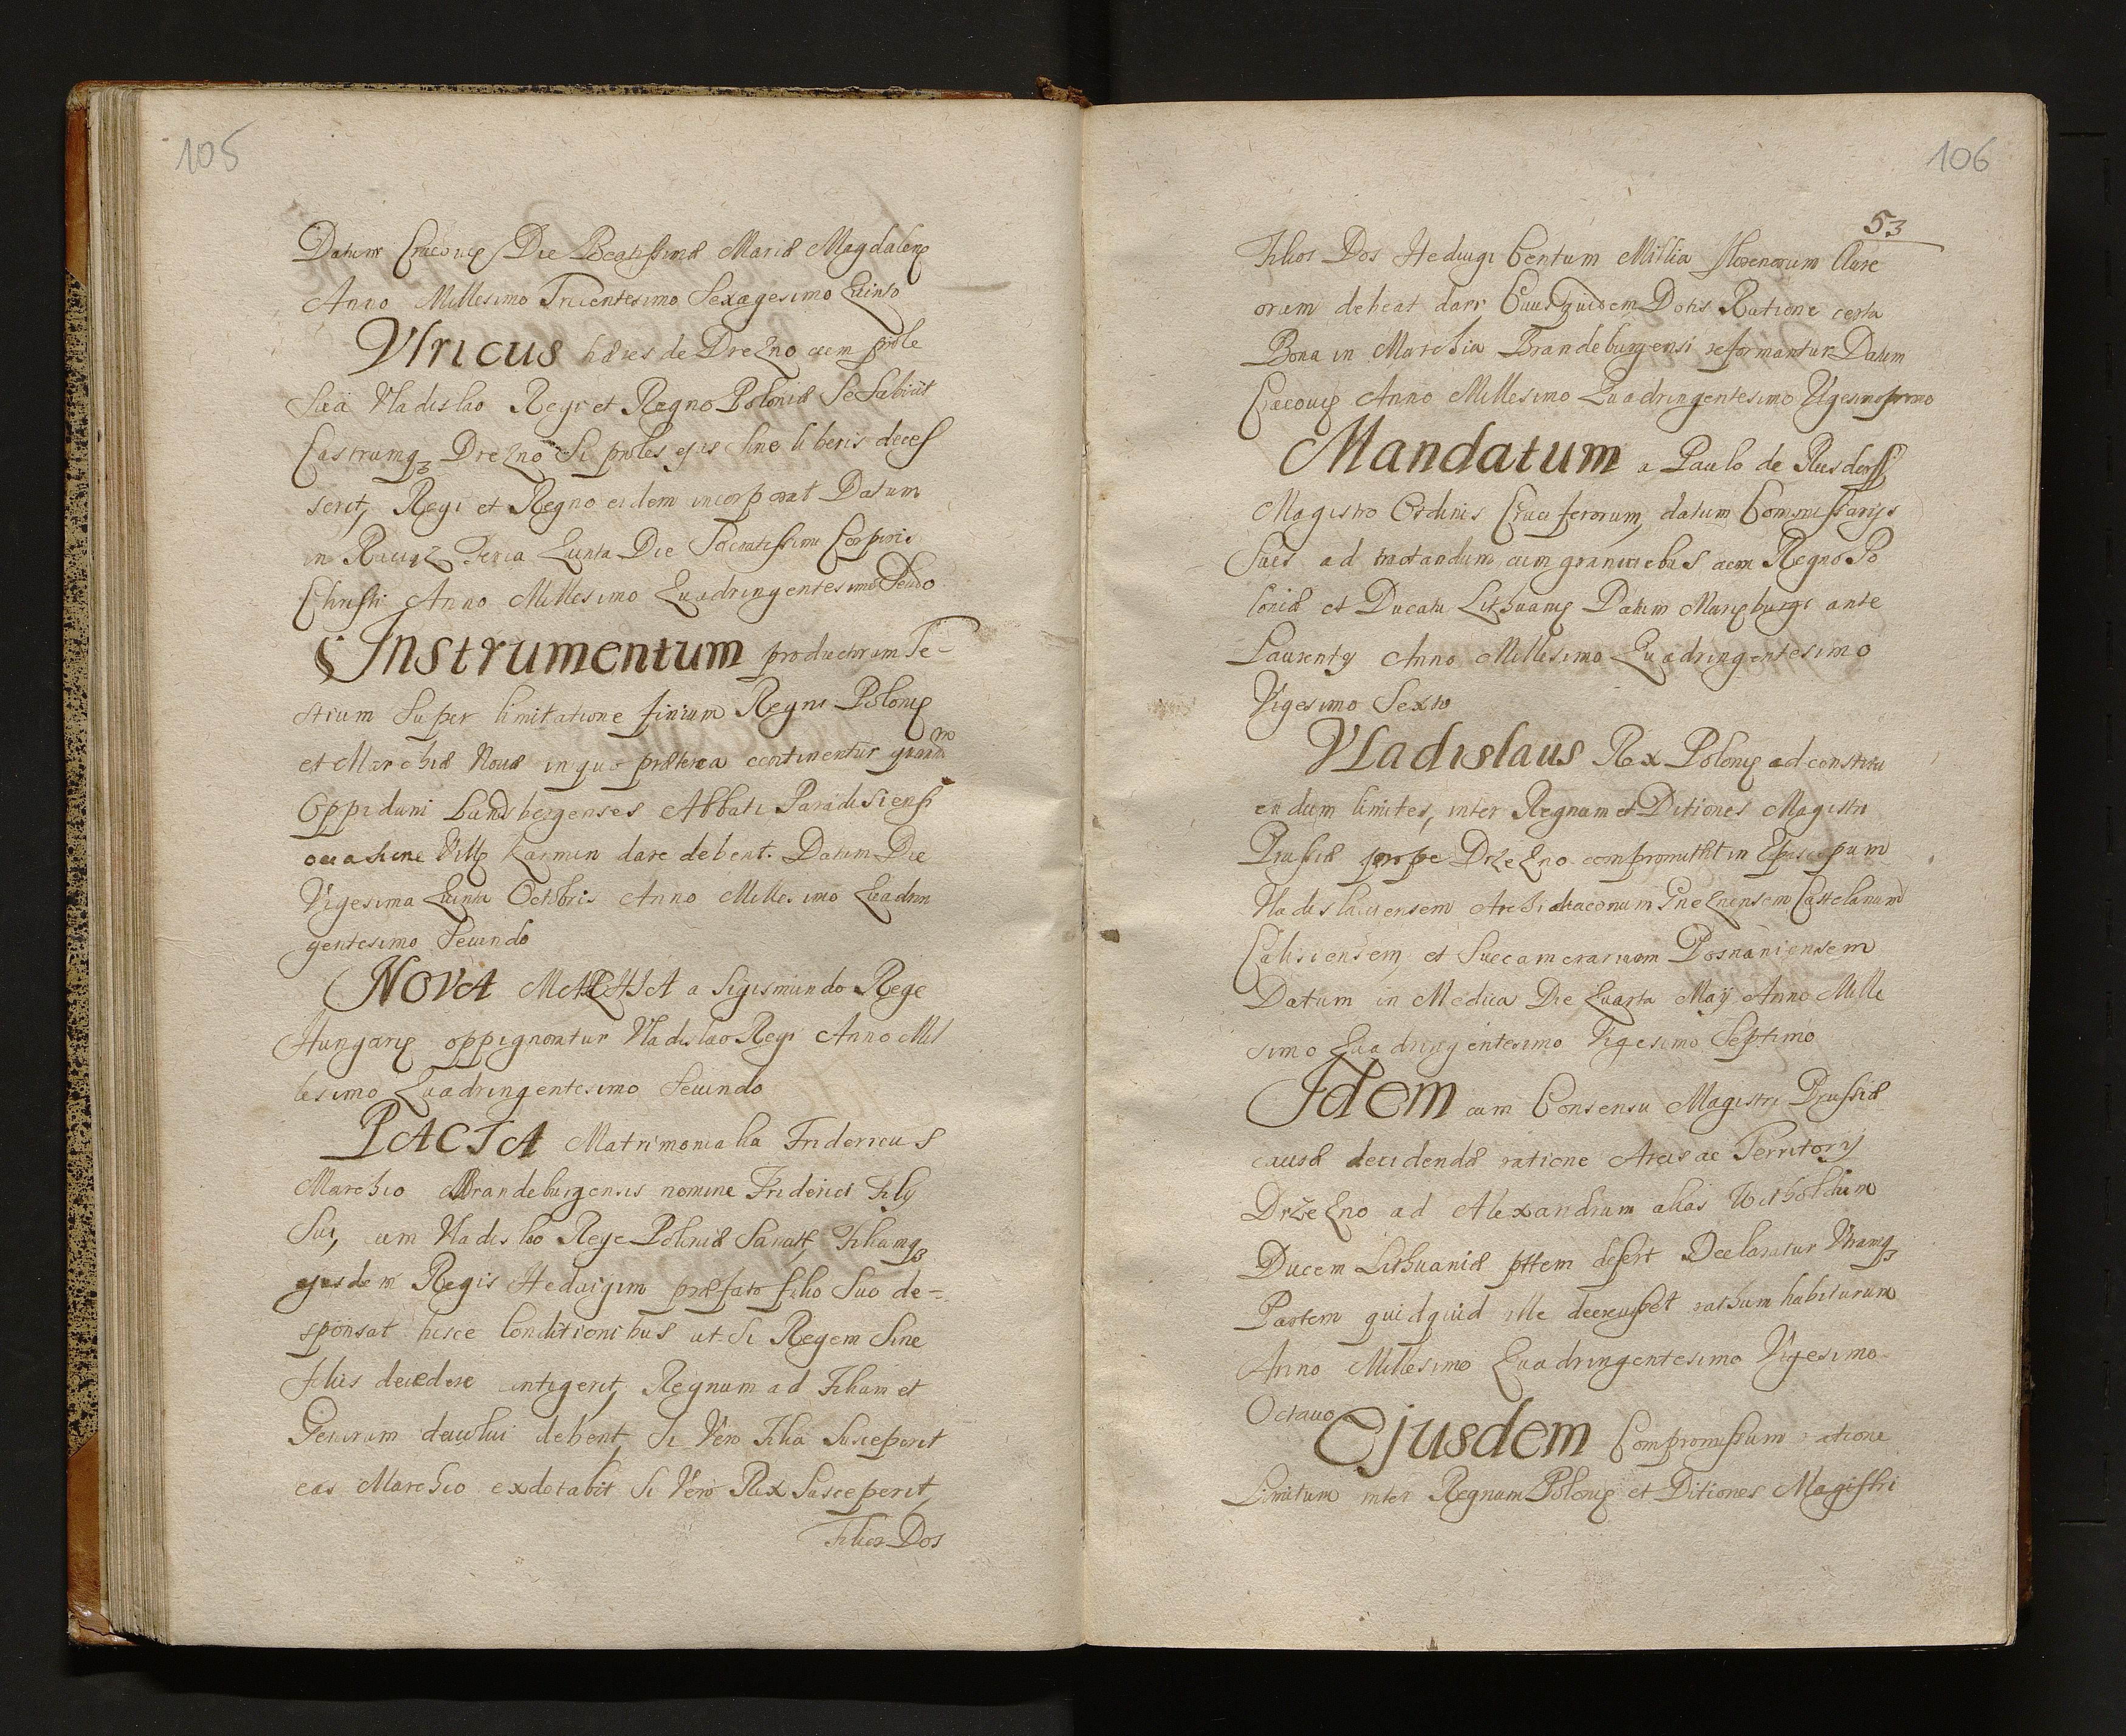 105
Datum Cracovię Die Beatissimæ Mariæ Magdalenę
Anno Millesimo Tricentesimo Sexagesimo Quinto
Vlricus hæres de Drezno cum prole
Sua Vladislao Regi et Regno Poloniæ Se Subiicit
Castrumq3 Drezno Si proles ejus Sine liberis deces
serit, Regi et Regno eidem incorporat Datum
in Feria Quinta Die Sacratissimi Corporis
Christi Anno Millesimo Quadringentesimo Secundo
Instrumentum productarum Te-
stium Super limitatione finium Regni Polonię
et Marchiæ Novæ in quo præterea continentur
Oppidani Landsbergenses Abbati Paradisiensi
ocasione Villę Karmin dare debent. Datum Die
Vigesima Quinta Octobris Anno Millesimo Quadrin
gentesimo Secundo
NOVA MARCHIA a Sigismundo Rege
Hungarię oppignoratur Vladislao Regi Anno Mil
lesimo Quadringentesimo Secundo
PACTA Matrimonialia Fridericus
Marchio Brandeburgensis nomine Friderici Filij
Sui, cum Vladislao Rege Poloniæ Sancit, Filiamq3
ejusdem Regis Hedvigim præfato filio Suo de-
sponsat hisce Conditionibus ut Si Regem Sine
filiis decedere contigerit, Regnum ad Filiam et
Generum devolvi debent, Si Vero Filia Susceperit
eas Marchio exdotabit Si Vero Rex Susceperit,
Filios Dos
106
53
Filios Dos Hedvigi Centum Millia florenorum Aure
orum debeat dari Cuius quidem Dotis Ratione certa
Bona in Marchia Brandeburgensi reformantur Datum
Cracovię Anno Millesimo Quadringentesimo Vigesimoprimo
Mandatum a Paulo de Rusdorff
Magistro Ordinis Cruciferorum, datum Commissarijs
Suis ad tractandum cum granitiebus cum Regno Po
loniæ et Ducatu Lithuanię Datum Marięburgi ante
Laurentij Anno Millesimo Quadringentesimo
Vigesimo Sexto
Vladislaus Rex Polonię ad constitu
endum limites, inter Regnum et Ditiones Magistri
Prussiæ prope Drzezno compromittit in Episcopum
Vladislauiensem Archidiaconum Gneznensem Castelanum
Calisiensem et Succamerarium Posnaniensem
Datum in Medica Die Quarta Maij Anno Mille
simo Quadringentesimo Vigesimo Septimo
Idem cum Consensu Magistri Prussiæ
causæ decidendæ ratione Arcis ac Territorij
Drzezno ad Alexandrum alias Witholdum
Ducem Lithuaniæ pttem defert Declaratur Vtramq3
Partem quidquid ille decreuisset rathum habituram
Anno Millesimo Quadringentesimo Vigesimo
Octauo
Ejusdem Compromissum ratione
Limitum inter Regnum Polonię et Ditiones Magistri